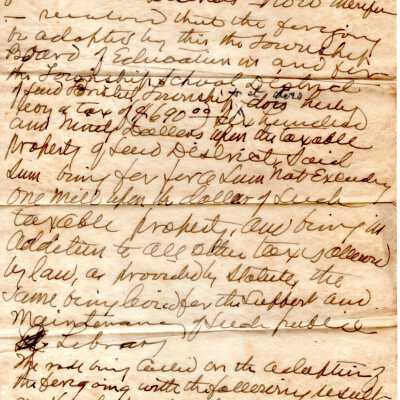 now therefor
- resolved that the foregoing
be adopted by this the Township
Board of Education in and for
the Township School District
of said Bristol Township, does hereby
levy a tax of $690.00 Six hundred
and ninety Dollars upon the taxable
property of said District, Said
Sum being for for a Sum not Exceeding
one mill upon the dollar of Such
taxable property, and being in
addition to all other taxes allowed
by law, as provided by Statute, the
same being levied for the Support and
Maintenance of Such public
Library
The vote being called on the adoption
the foregoing with the following result